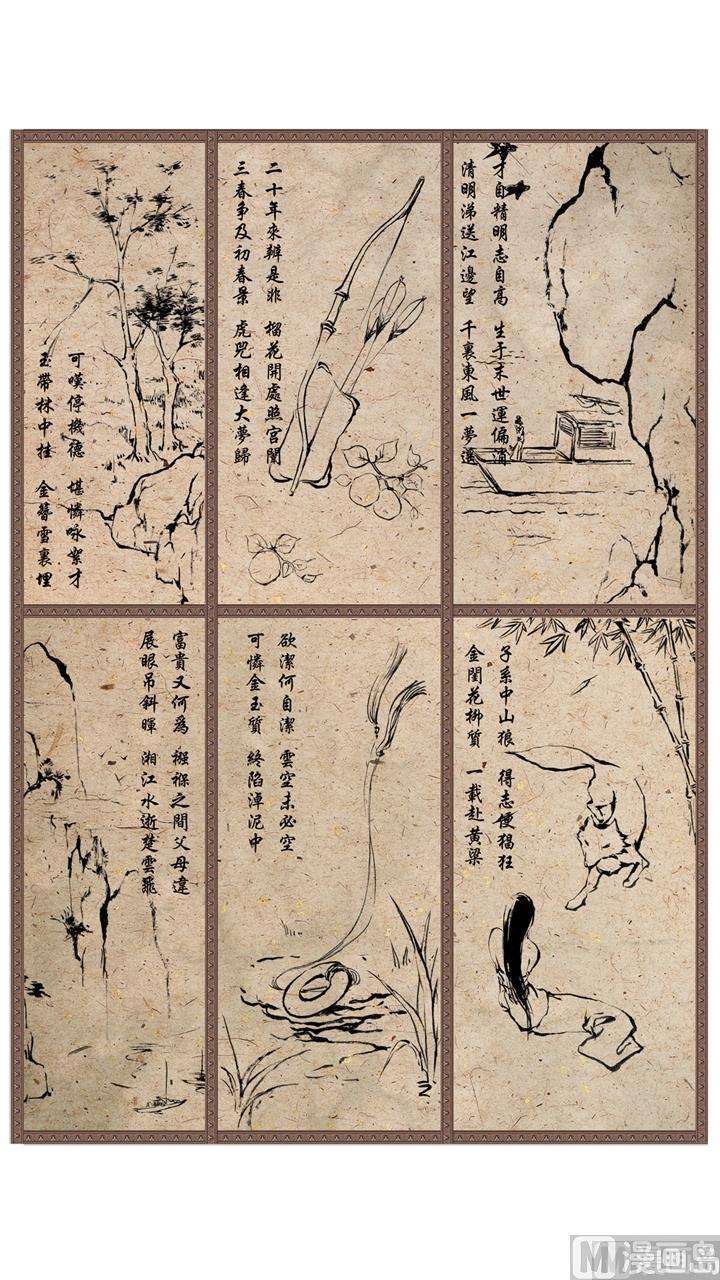 可嘆停機德　堪憐咏絮才
玉帶林中挂　金簪雪裏埋
二十年來辨是非　榴花開處照宮闈
三春爭及初春景　虎兕相逢大夢歸
才自精明志自高　生于末世運偏消
清明涕送江邊望　千裏東風一夢遥
富貴又何爲　襁褓之間父母違
展眼吊斜暉　湘江水逝楚雲飛
欲潔何曾潔　雲空未必空
可憐金玉質　終陷淖泥中
子系中山狼　得志便猖狂
金閨花柳質　一載赴黄粱
漫画岛